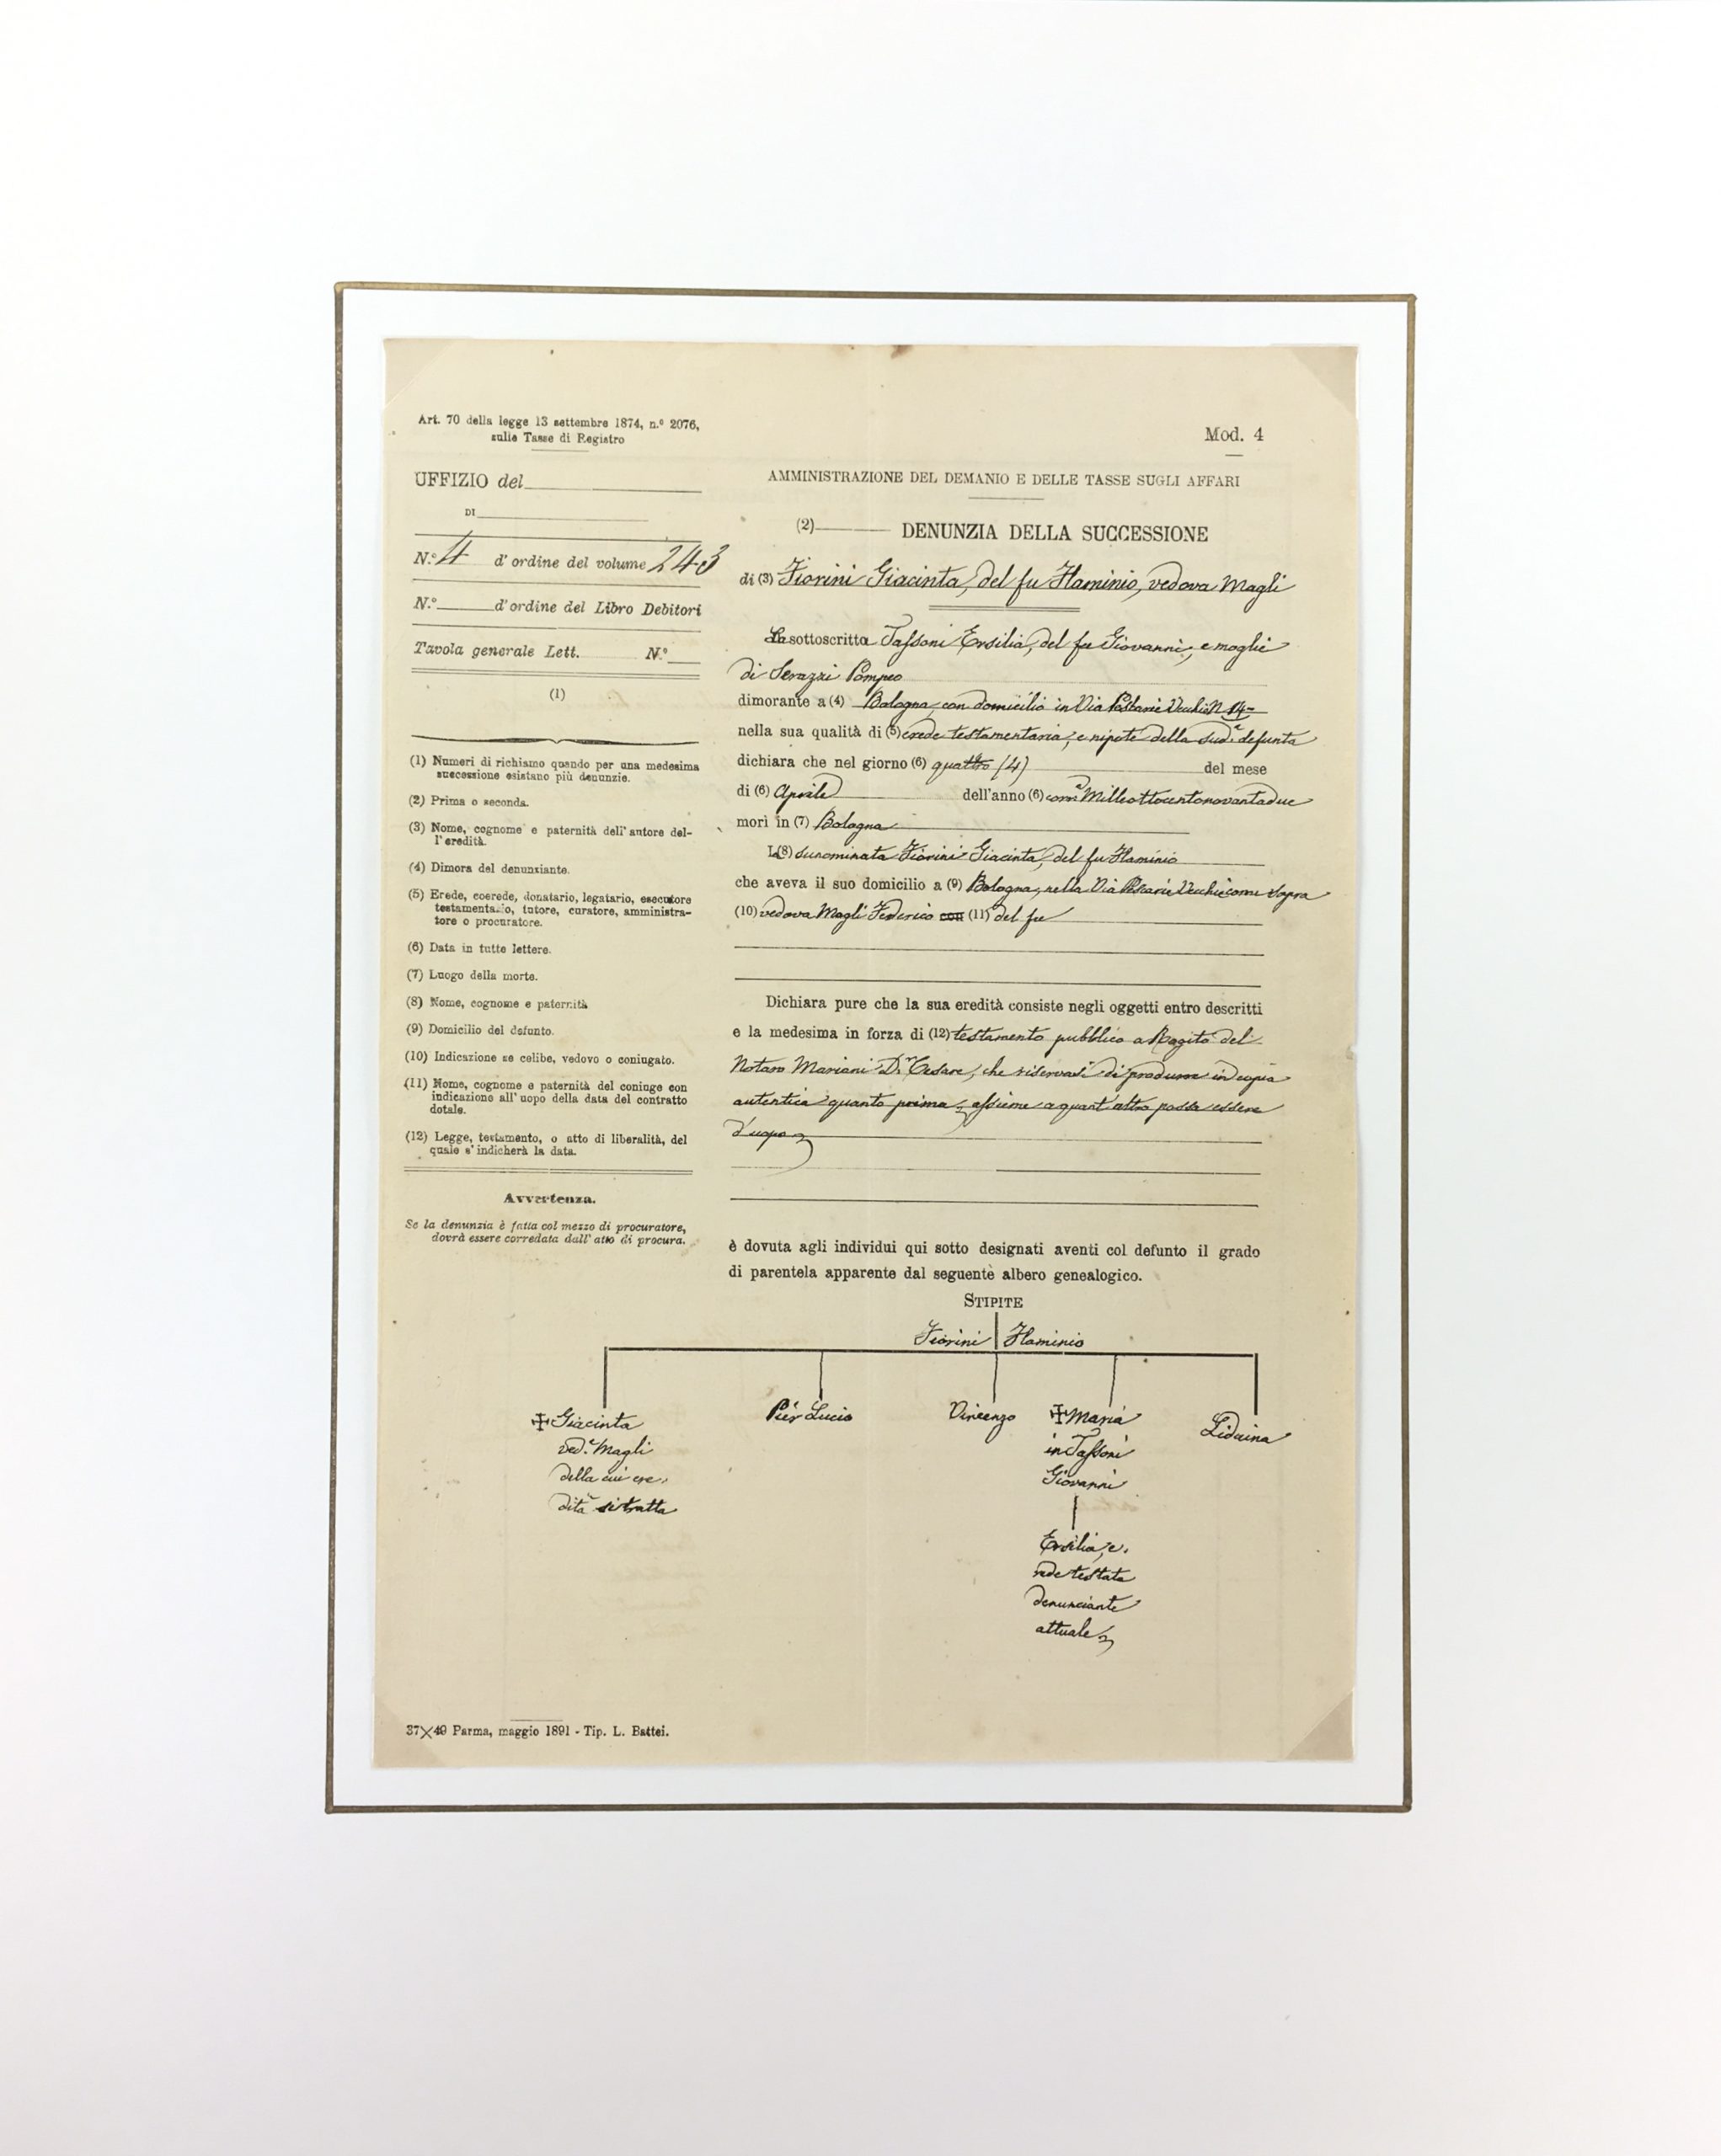 Art. 70 della legge 13 settembre 1874, n.º 2076,
sulle Tasse di Registro
Mod. 4
UFFIZIO del
DI
N.º 4 d'ordine del volume 243
N.º d'ordine del Libro Debitori
Tavola generale Lett. N.º
(1)
(1) Numeri di richiamo quando per una medesima
successione esistano più denunzie.
(2) Prima o seconda.
(3) Nome, cognome e paternità dell'autore del-
l'eredità.
(4) Dimora del denunziante.
(5) Erede, coerede, donatario, legatario, esecutore
testamentario, tutore, curatore, amministra-
tore o procuratore.
(6) Data in tutte lettere.
(7) Luogo della morte.
(8) Nome, cognome e paternità
(9) Domicilio del defunto.
(10) Indicazione se celibe, vedovo o coniugato.
(11) Nome, cognome e paternità del coniuge con
indicazione all'uopo della data del contratto
dotale.
(12) Legge, testamento, o atto di liberalità, del
quale s'indicherà la data.
Avvertenza.
Se la denunzia è fatta col mezzo di procuratore,
dovrà essere corredata dall'atto di procura.
AMMINISTRAZIONE DEL DEMANIO E DELLE TASSE SUGLI AFFARI
(2) DENUNZIA DELLA SUCCESSIONE
di (3) Fiorini Giacinta, del fu Flaminio, vedova Magli
La sottoscritta Tassoni Ersilia, del fu Giovanni, e moglie
di Serazzi Pompeo
dimorante a (4) Bologna, con domicilio in Via Pescarie Vecchie N 14
nella sua qualità di (5) erede testamentaria, e nipote della sud.a defunta
dichiara che nel giorno (6) quattro (4) del mese
di (6) Aprile dell'anno (6) Milleottocentonovantadue
morì in (7) Bologna
La (8) sunominata Fiorini Giacinta, del fu Flaminio
che aveva il suo domicilio a (9) Bologna, nella Via Pescarie Vecchie come sopra
(10) vedova Magli Federico con (11) del fu
Dichiara pure che la sua eredità consiste negli oggetti entro descritti
e la medesima in forza di (12) testamento pubblico a Rogito del
Notaro Mariani D.r Cesare, che riservasi di produrre in copia
autentica quanto prima, assieme a quant'altro possa essere
d'uopo
è dovuta agli individui qui sotto designati aventi col defunto il grado
di parentela apparente dal seguente albero genealogico.
STIPITE
Fiorini Flaminio
Giacinta
ved.a Magli
della cui ere,
dità si tratta
Pier Lucio
Vincenzo
Maria
in Tassoni
Giovanni
Liduina
Ersilia, e,
rede testata
denunciante
attuale
37×49 Parma, maggio 1891 - Tip. L. Battei.